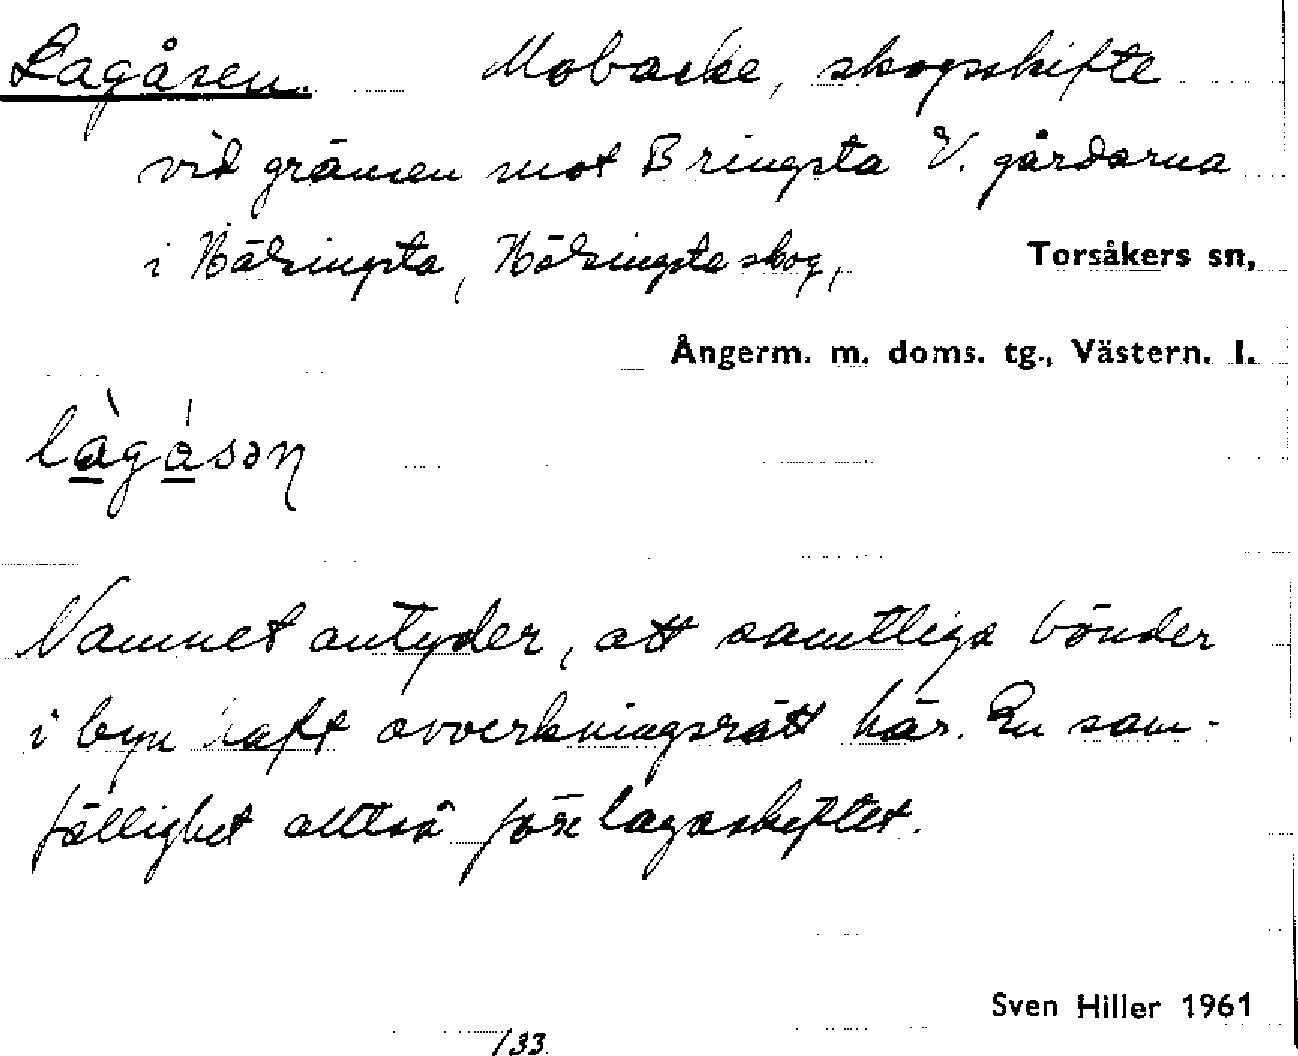 Lagåsen. Mobacke, skogsskifte
vid gränsen mot Bringsta V. gårdarna
i Hälsingsta, Hälsingsta skog, Torsåkers sn,
Ångerm. m. doms. tg., Västern. l.
là̱gá̱sən
Namnet antyder, att samtliga bönder
i byn haft avverkningsrätt här. En sam-
fällighet alltså före lagaskiftet.
Sven Hiller 1961
/33